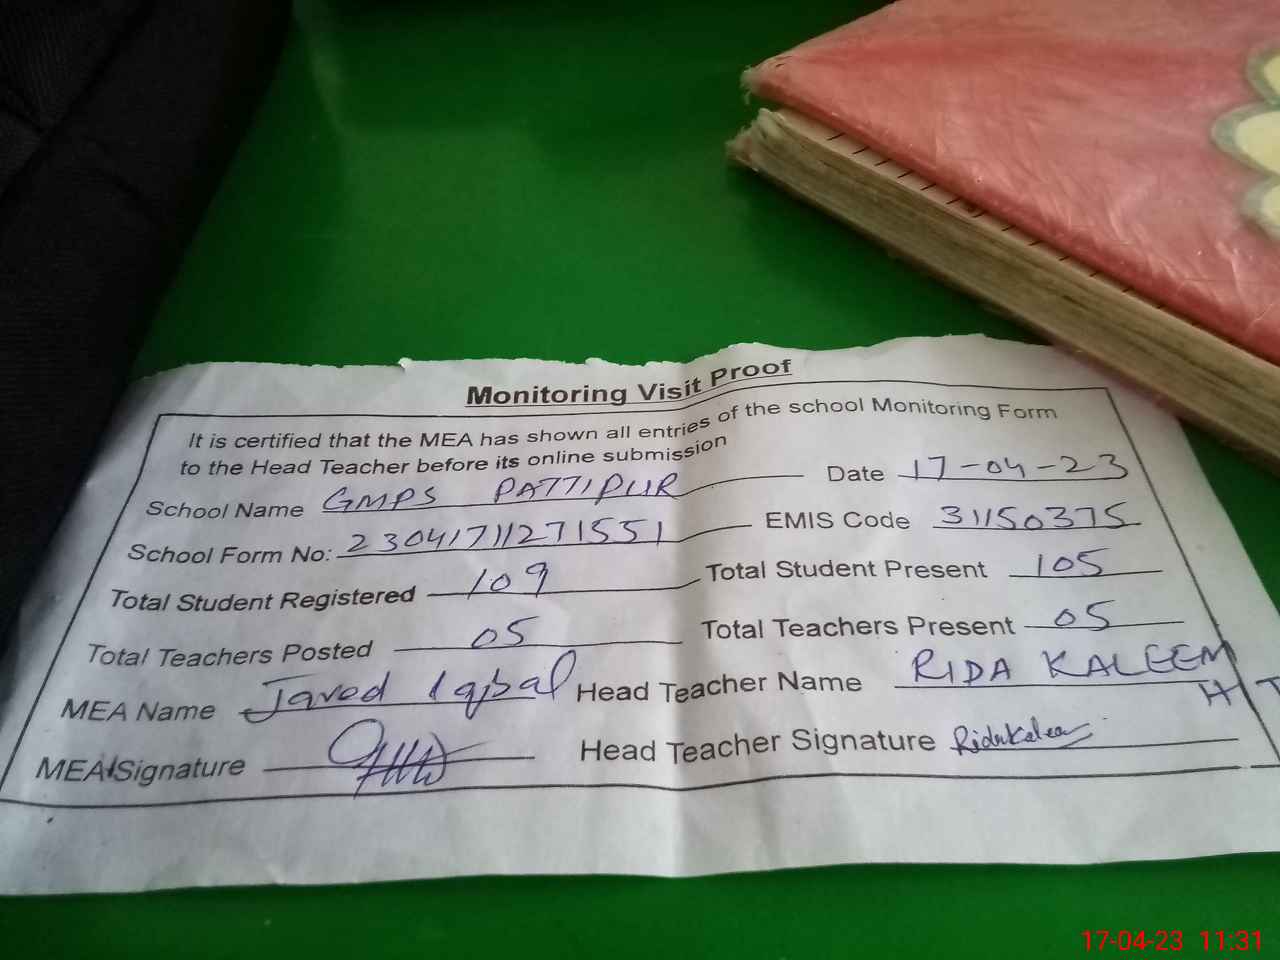 Monitoring Visit Proof
It is certified that the MEA has shown all entries of the school Monitoring Form
to the Head Teacher before its online submission
School Name GMPS PATTIPUR Date 17-04-23
School Form No: 23041711271551 EMIS Code 31150375
Total Student Registered 109 Total Student Present 105
Total Teachers Posted 05 Total Teachers Present 05
MEA Name Javed Iqbal Head Teacher Name RIDA KALEEM
H T
MEA Signature Head Teacher Signature
17-04-23 11:31